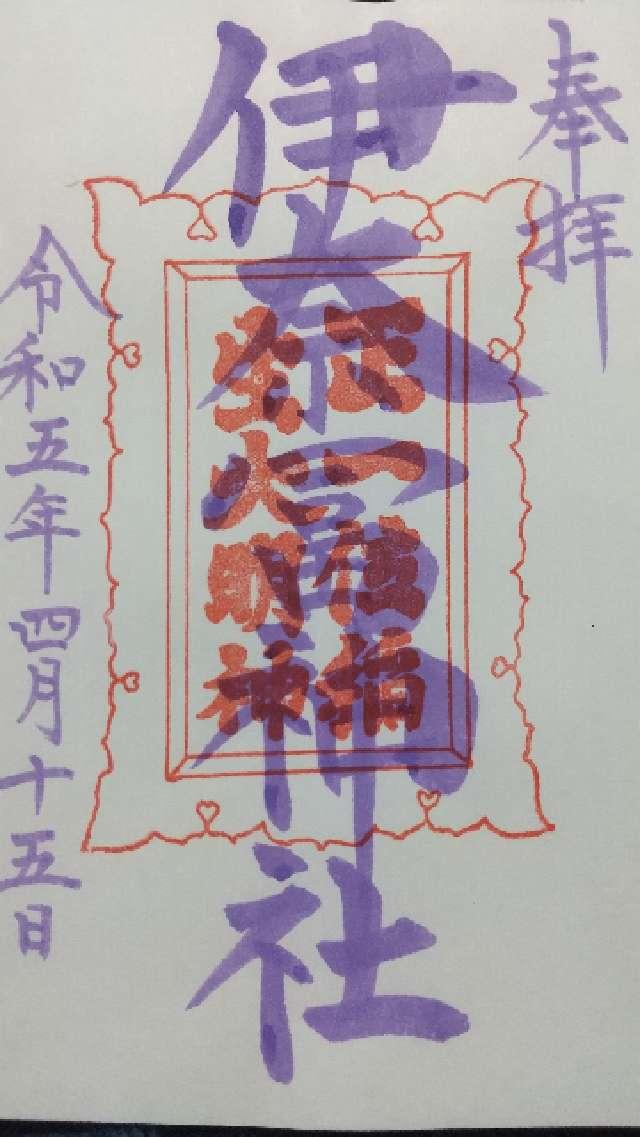 奉拝
伊奈冨神社
正一位指
生大明神
令和五年四月十五日